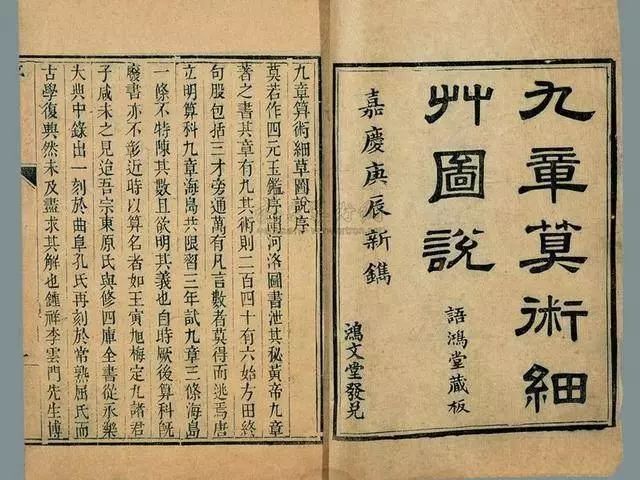 九章筭術細
艸圖說
嘉慶庚辰新鐫
語鴻堂藏板
鴻文堂發兌
九章算術細草圖說序
莫若作四元玉鑑序謂河洛圖書泄其秘黃帝九章
著之書其章有九其術則二百四十有六始方田終
句股包括三才旁通萬有凡言數者莫得而逃焉唐
立明算科九章海島共限習三年試九章三條海島
一條不特陳其數且欲明其義也自時厥後算科旣
廢書亦不彰近時以算名者如王寅旭梅定九諸君
子咸未之見迨吾宗東原氏與修四庫全書從永樂
大典中錄出一刻於曲阜孔氏再刻於常熟屈氏而
古學復興然未及盡求其解也鍾祥李雲門先生博